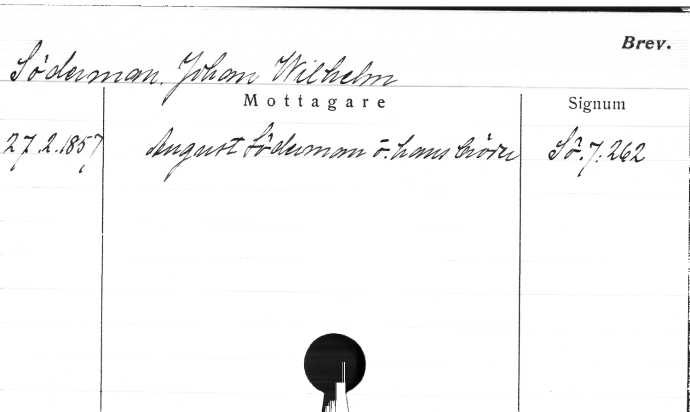 Brev.
Söderman, Johan Wilhelm
Mottagare Signum
27.2.1857 August Söderman o. hans bröder Sö. 7: 262